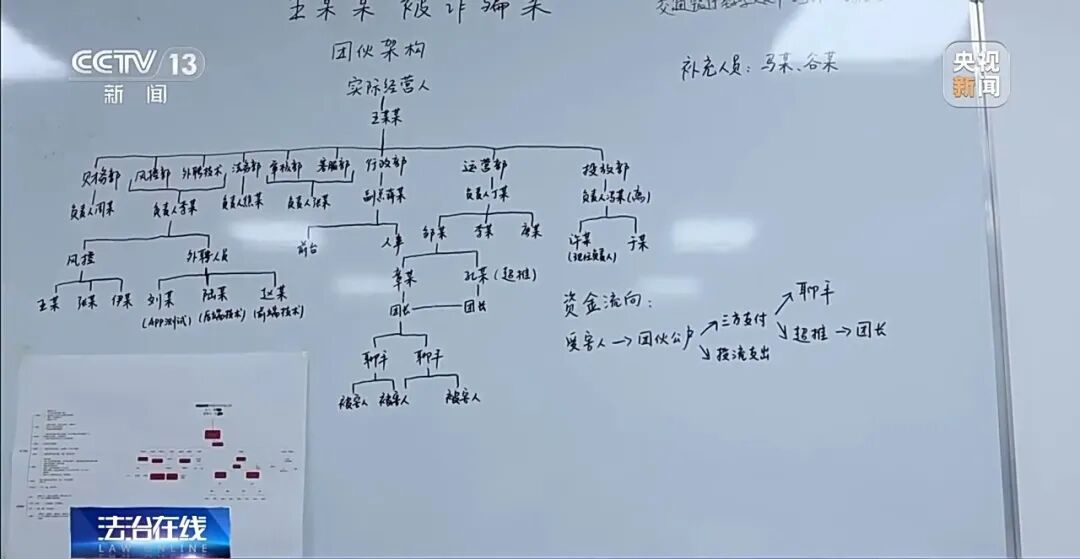 王某某被诈骗案
CCTV 13
新闻
央视
新闻
团伙架构
补充人员：马某、谷某
实际经营人
王某某
财务部 风控部 外聘技术 法务部 审核部 客服部 行政部 运营部 投放部
负责人周某 负责人李某 负责人焦某 负责人张某 副总薛某 负责人丁某 负责人冯某(离)
前台 人事 邹某 李某 唐某 许某 于某
(现任负责人)
风控 外聘人员
章某 孔某(超推)
王某 陆某 伊某 刘某 陆某 赵某
(APP测试) (后端技术) (前端技术)
团长 团长
聊手 聊手
被害人 被害人 被害人
资金流向：
受害人→团伙公户 三方支付 聊手
投流支出 超推→团长
法治在线
LAW ONLINE